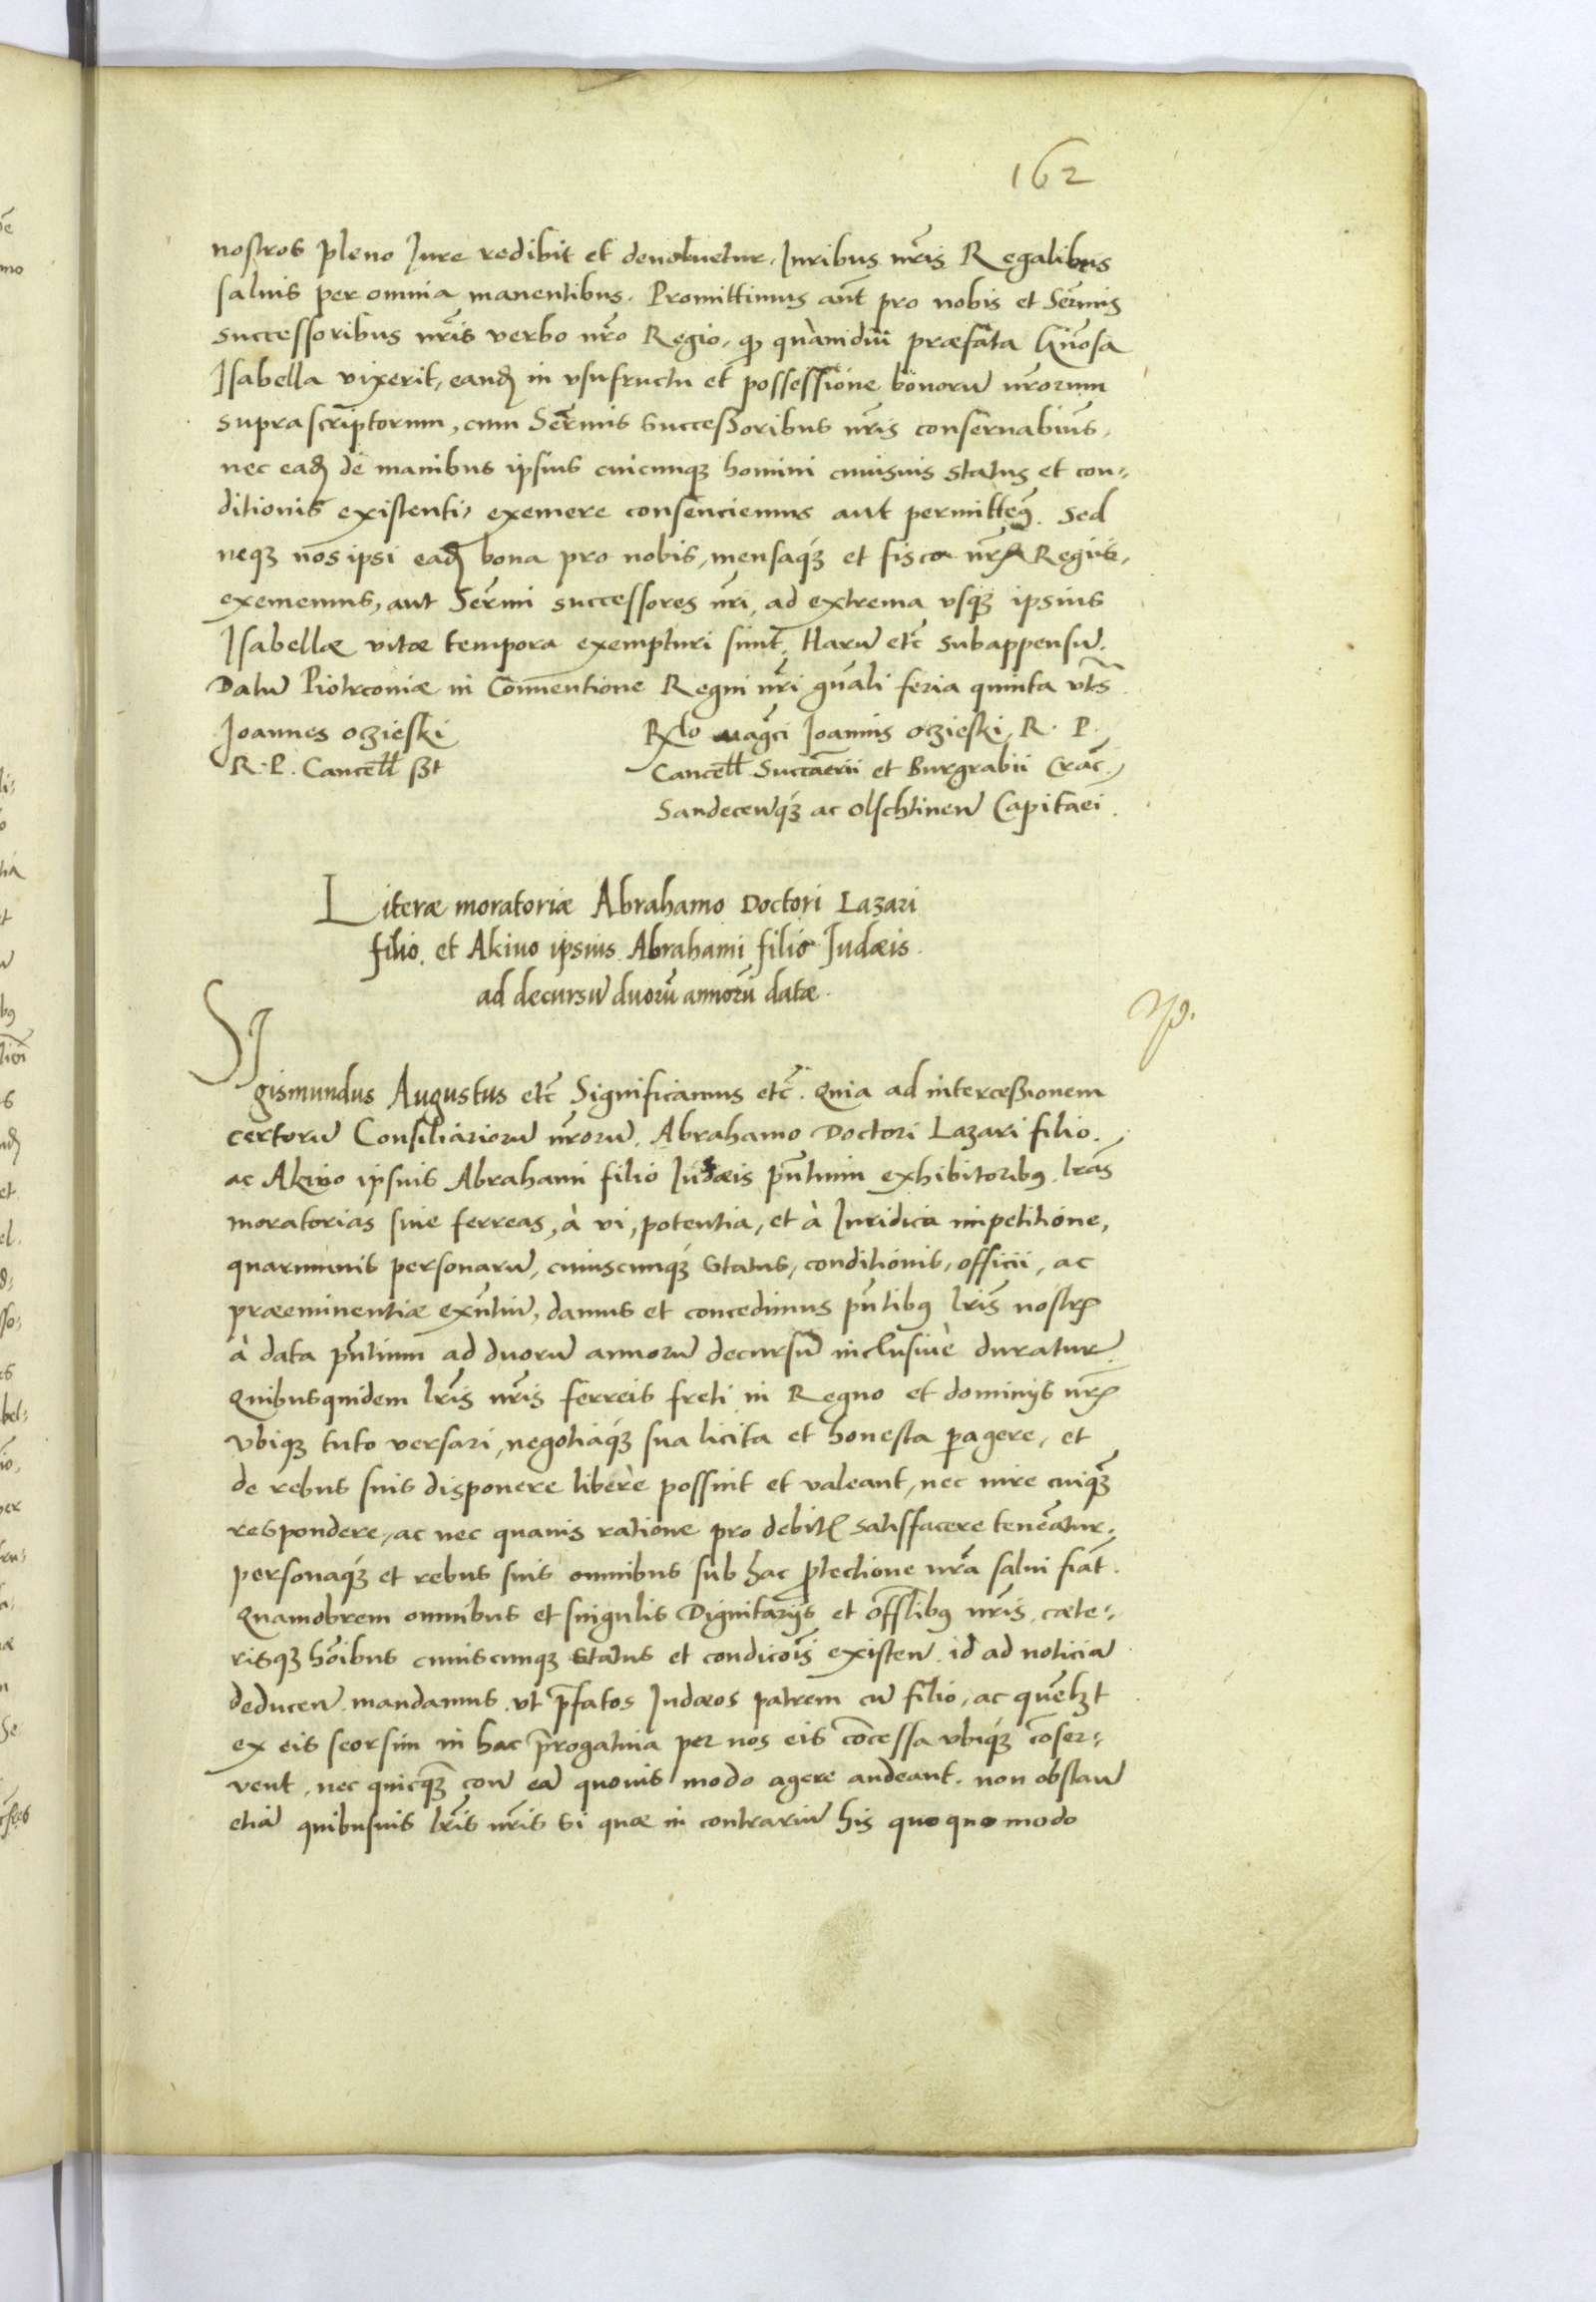 162
nostros pleno Iure redibit et devolvetur, Iuribus nr̃is Regalibus
salvis per omnia manentibus. Promittimus aũt pro nobis et Serm̃is
successoribus nr̃is verbo nr̃o Regio, qp quàmdiu præfata Gñosa
Isabella vixerit, eandꝫ in usufructu et possessione bonorũ nr̃orum
suprascriptorum, cum Serm̃is Successoribus nr̃is conservabim͂s,
nec eadꝫ de manibus ipsius cuicunqꝫ homini cuiusvis status et con-
ditionis existenti, eximere consenciemus aut permittemꝰ. Sed
neqꝫ nos ipsi eadꝫ bona pro nobis, mensaqꝫ et fisco nr̃is Regiis,
exememus, aut Serm̃i successores nr̃i, ad extrema usqꝫ ipsius
Isabellæ vitæ tempora exempturi sunt. Harũ etc̃ subappensũ.
Datũ Piotrconiæ in Conventione Regni nr̃i gñali feria quinta ut s̃.
Joannes oczieski
R. P. Cancell̃ sst
Rl̃o magc̃i Joannis oczieski, R. P.
Cancell̃ Succam̃erii et Burgrabii Crac̃.
Sandecen̄qꝫ ac olschtinen̄ Capitaei.
Literæ moratoriæ Abrahamo Doctori Lazari
filio, et Akivo ipsius Abrahami filio Iudæis
ad decursũ duorũ annorũ datæ.
Sigismundus Augustus etc̃ Significamus etc̃. Quia ad intercessionem
certorũ Consiliariorũ nr̃orũ, Abrahamo Doctori Lazari filio,
ac Akivo ipsius Abrahami filio Iudæis pñtium exhibitoribꝰ, lr̃as
moratorias sive ferreas, à vi, potentia, et à Iuridica impetitione,
quarumvis personarũ, cuiuscunqꝫ status, conditionis, officii, ac
præeminentiæ exñtiũ, damus et concedimus pñtibꝰ lr̃is nostris
à data pñtium ad duorũ annorũ decursũ inclusivè duratur̃.
Quibusquidem lr̃is nr̃is ferreis freti in Regno et dominijs nr̃is
ubiqꝫ tuto versari, negotiaqꝫ sua licita et honesta ꝑagere, et
de rebus suis disponere liberè possint et valeant, nec iure cuiqꝫ̃
respondere, ac nec quavis ratione pro debitis satisfacere teneãtur,
personaqꝫ et rebus suis omnibus sub hac ꝓtectione nr̃a salvi fiãt.
Quamobrem omnibus et singulis Dignitarijs et offl̃ibꝰ nr̃is, cæte-
risqꝫ hõibus cuiuscunqꝫ status et condicõis existen̄ id ad noticiã
deducen̄ mandamus, ut p̃fatos Iudæos patrem cũ filio, ac quẽlꝫt
ex eis seorsim in hac p̃rogativa per nos eis cõcessa ubiqꝫ cõser-
vent, nec quicqꝫ̃ con̄ eã quovis modo agere audeant, non obstan̄
etiã quibusvis lr̃is nr̃is si quæ in contrariũ his quoquo modo